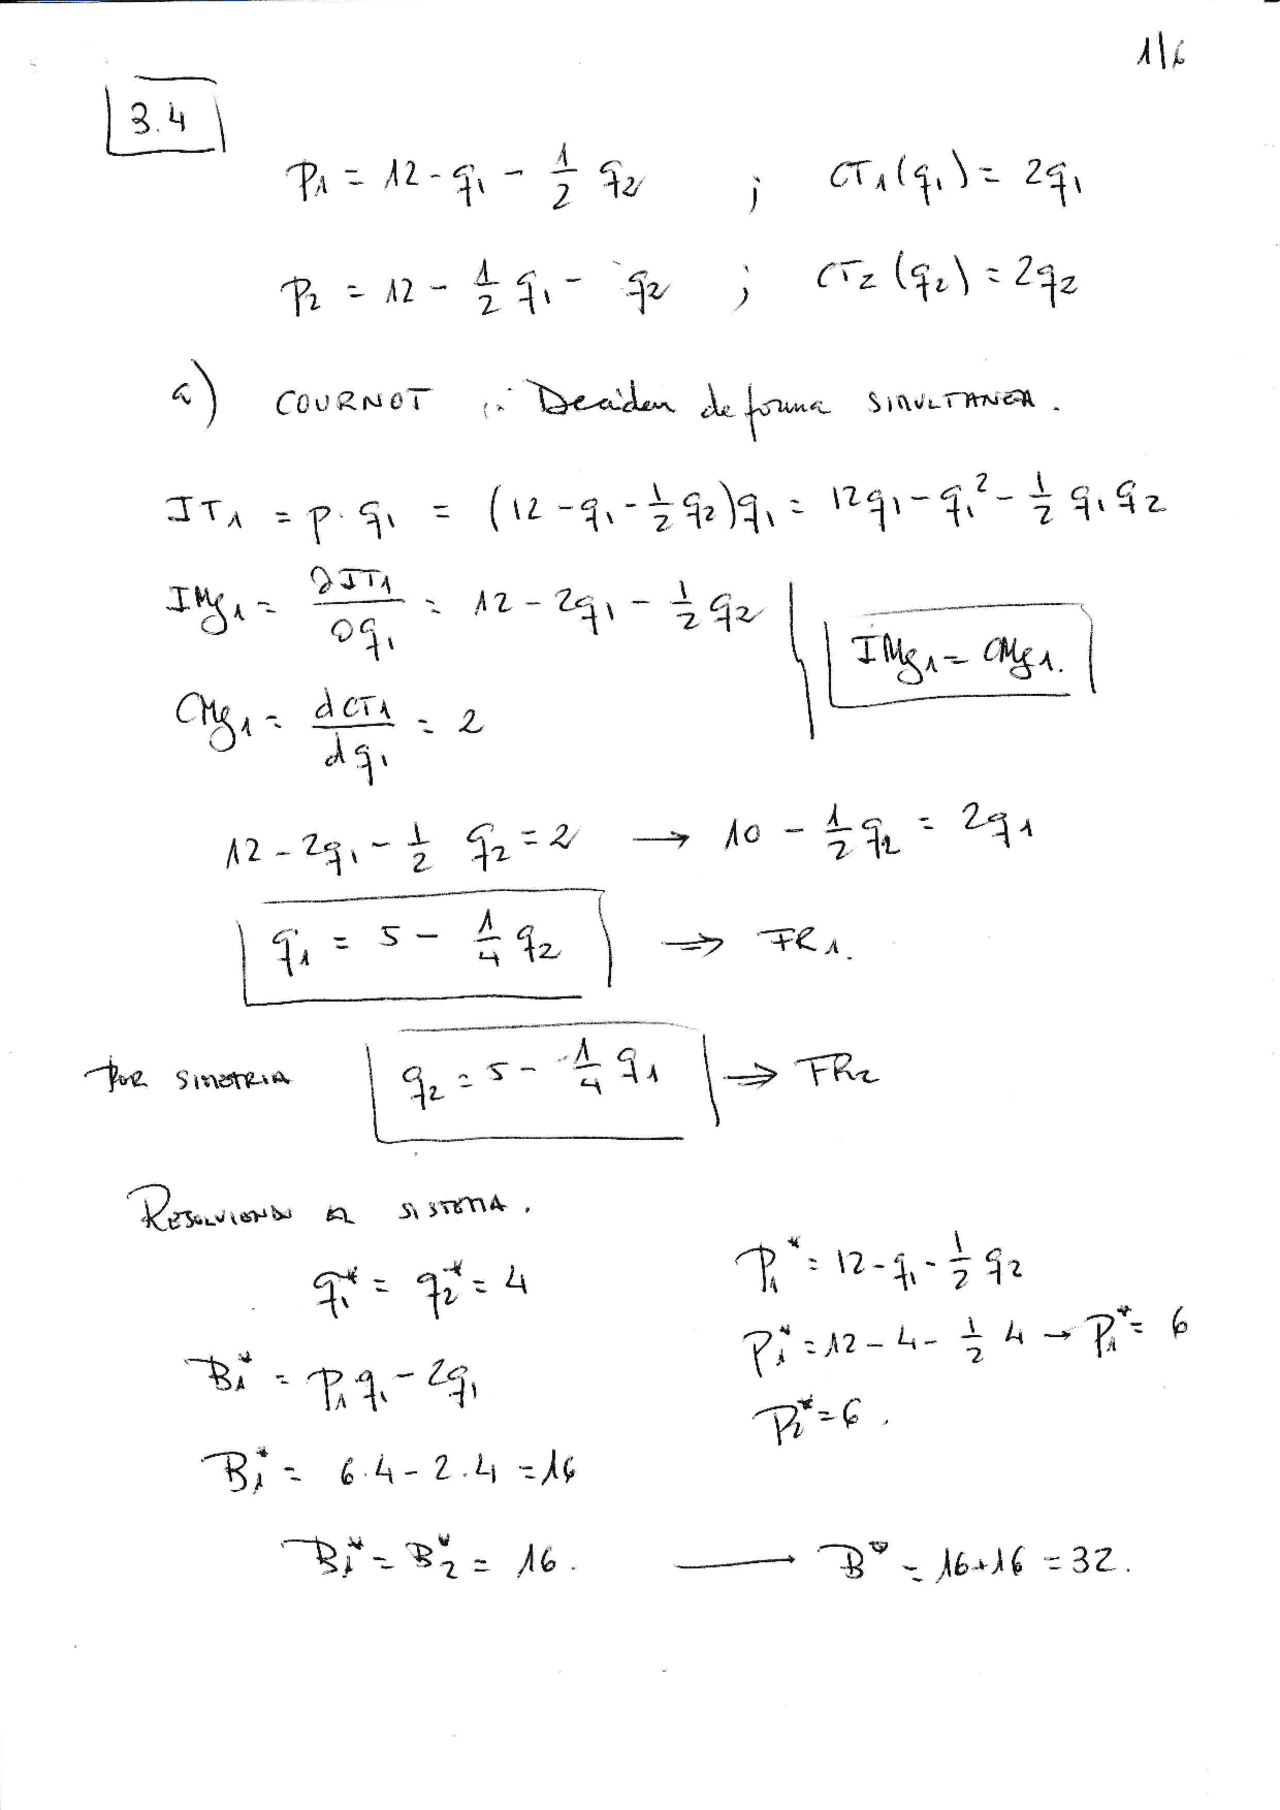 1/6
3.4
P1 = 12 - q1 - 1/2 q2 ; CT1(q1) = 2q1
P2 = 12 - 1/2 q1 - q2 ; CT2(q2) = 2q2
a) COURNOT : Deciden de forma SIMULTANEA.
IT1 = p · q1 = (12 - q1 - 1/2 q2)q1 = 12q1 - q1² - 1/2 q1q2
IMg1 = ∂IT1/∂q1 = 12 - 2q1 - 1/2 q2
IMg1 = CMg1.
CMg1 = dCT1/dq1 = 2
12 - 2q1 - 1/2 q2 = 2 → 10 - 1/2 q2 = 2q1
q1 = 5 - 1/4 q2 ⇒ FR1.
POR SIMETRIA q2 = 5 - 1/4 q1 ⇒ FR2
RESOLVIENDO EL SISTEMA.
q1* = q2* = 4
P1* = 12 - q1 - 1/2 q2
P1* = 12 - 4 - 1/2 4 → P1* = 6
B1* = P1q1 - 2q1
P2* = 6.
B1* = 6·4 - 2·4 = 16
B1* = B2* = 16. → B* = 16+16 = 32.